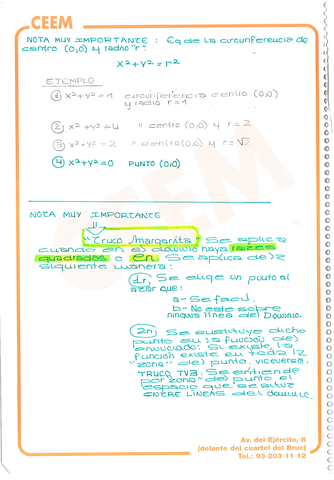 CEEM
NOTA MUY IMPORTANTE : Eq de la circunferencia de
centro (0,0) y radio "r"
x²+y²=r²
EJEMPLO
① x²+y²=1 circunferencia centro (0,0)
y radio r=1
② x²+y²=4 " centro (0,0) y r=2
③ x²+y²=2 " centro (0,0) y r=√2
④ x²+y²=0 PUNTO (0,0)
NOTA MUY IMPORTANTE
"Truco Margarita" Se aplica
cuando en el dominio haya raizes
quadradas o en. Se aplica de la
siguiente manera:
Se elige un punto al
azar que:
a- Sea facil.
b- No este sobre
ninguna linea del Dominio.
Se sustituye dicho
punto en la función del
enunciado. Si existe la
función existe en toda la
"zona" del punto, viceversa.
TRUCO TVB. Se entiende
por "zona" del punto el
espacio que se situe
ENTRE LINEAS del dominio.
Av. del Ejército, 8
(delante del cuartel del Bruc)
Tel.: 93 203 11 12